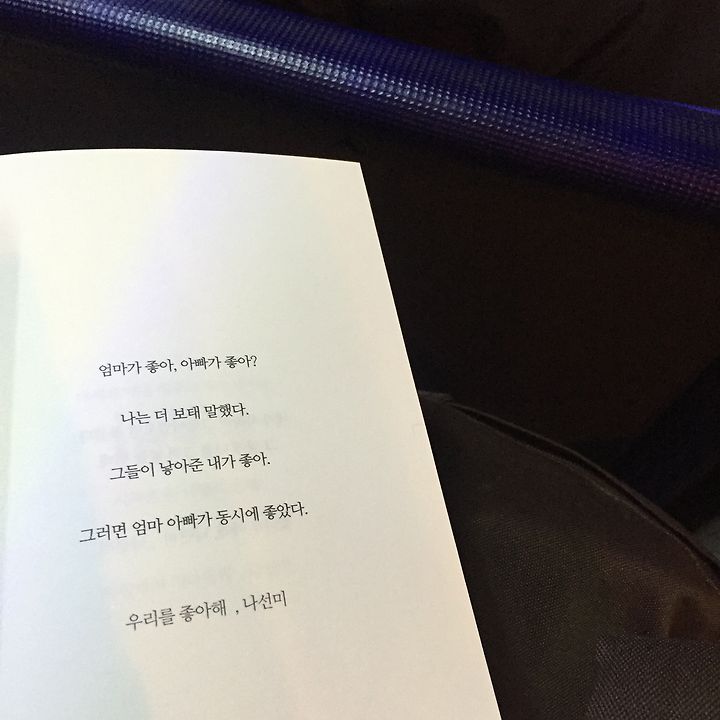 엄마가 좋아, 아빠가 좋아?
나는 더 보태 말했다.
그들이 낳아준 내가 좋아.
그러면 엄마 아빠가 동시에 좋았다.
우리를 좋아해 , 나선미